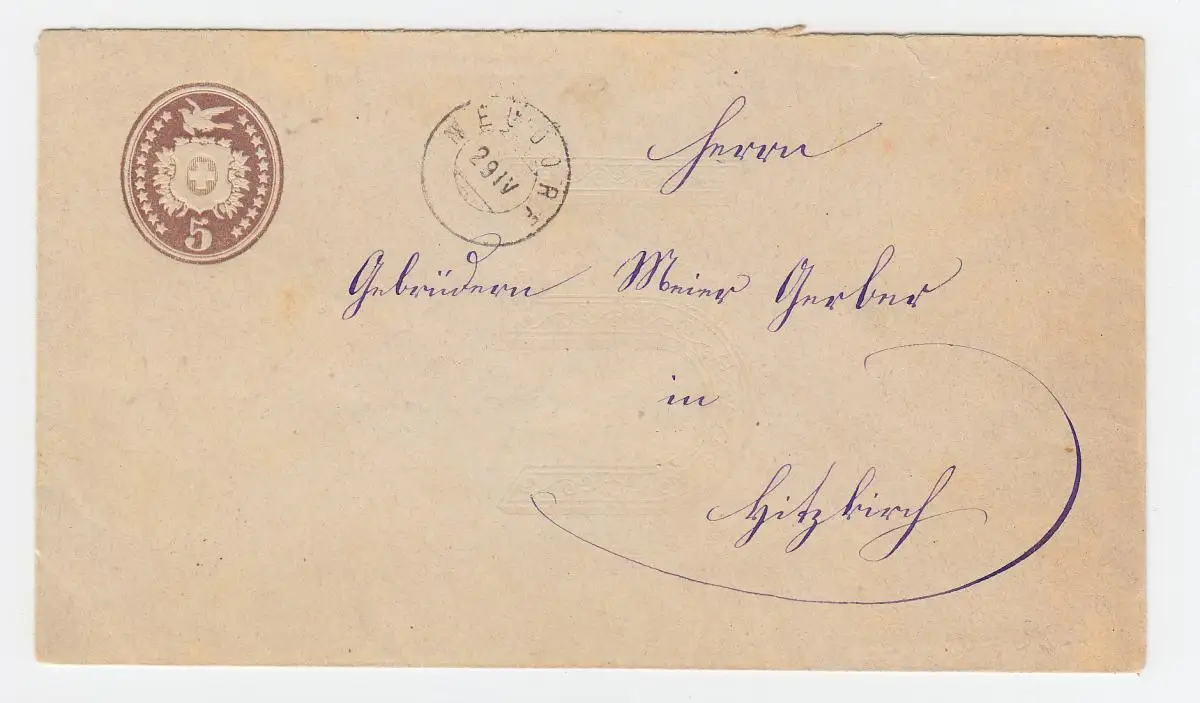 5
NEUDORF
29 IV
Herrn
Gebrüdern Meier Gerber
in
Hitzkirch